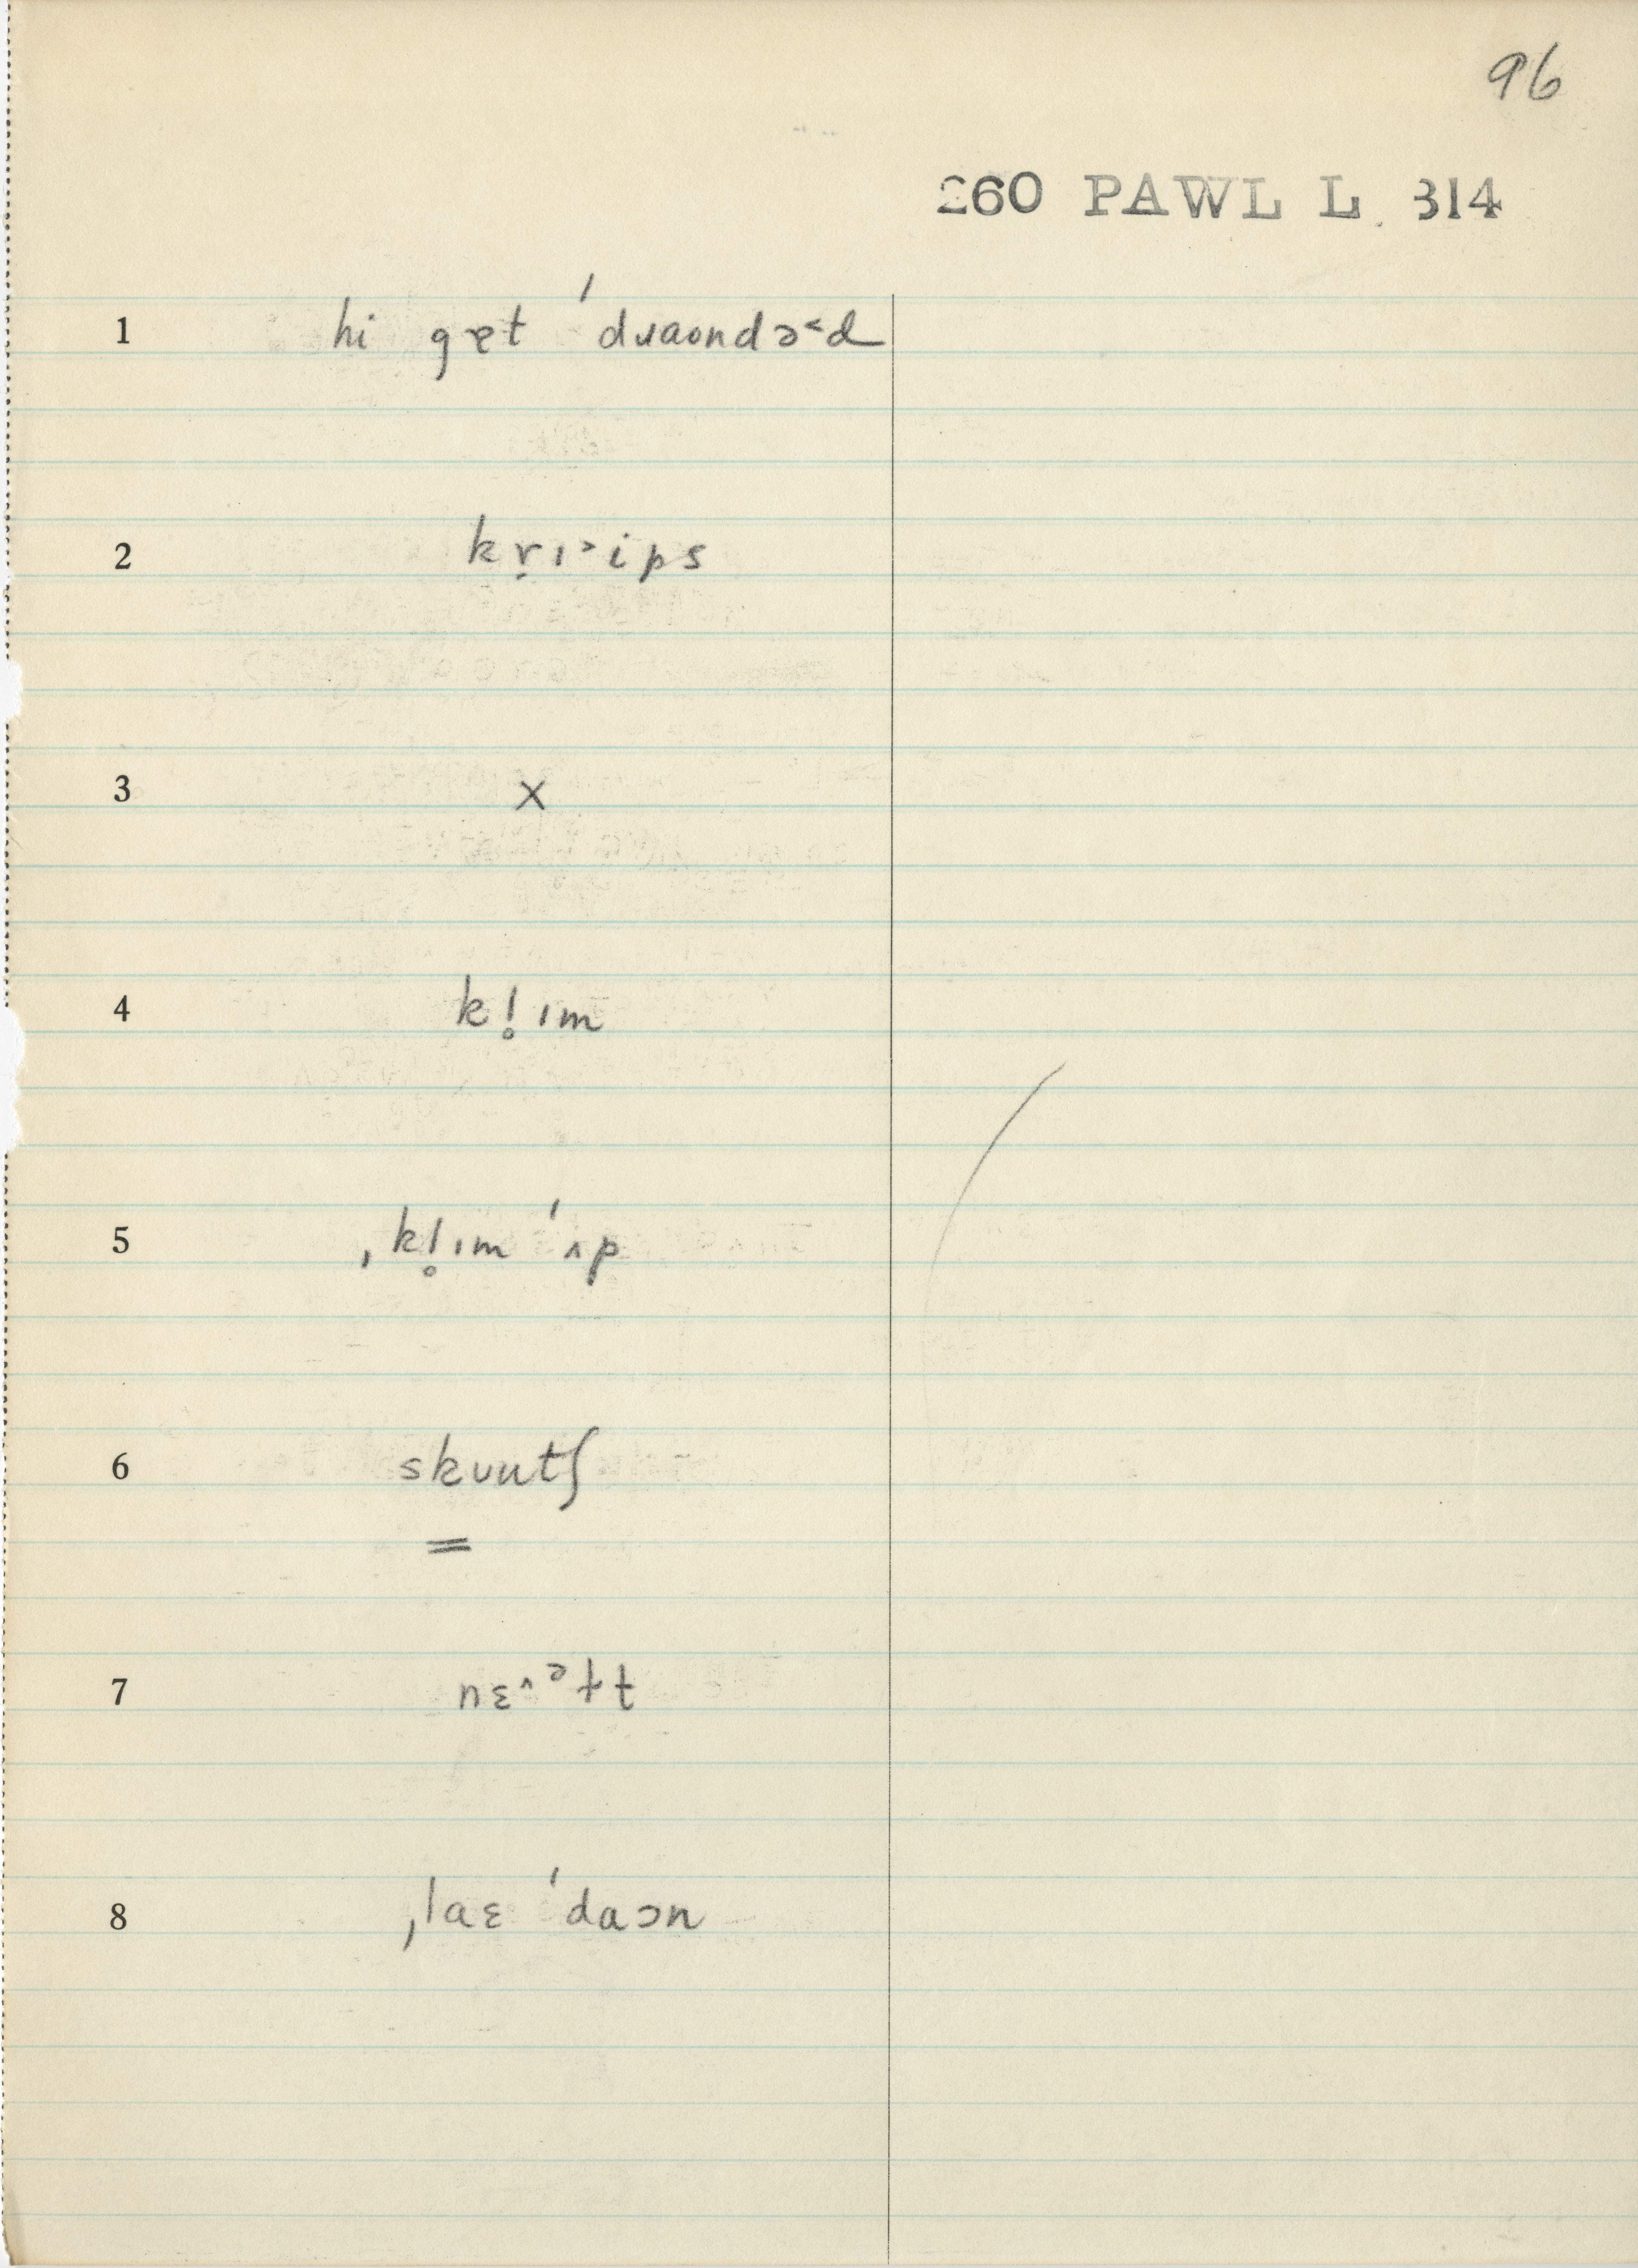 96
260 PAWL L. 314
1 hi gɐt ˈdɹaʊndə˂d
2 kṛɪ˃ips
3 x
4 kl̥ɪm
5 ˌkl̥ɪm ˈʌp
6 skuutʃ
=
7 nɛ˄ᵊɫt
8 ˌlaɛ ˈdaɔn